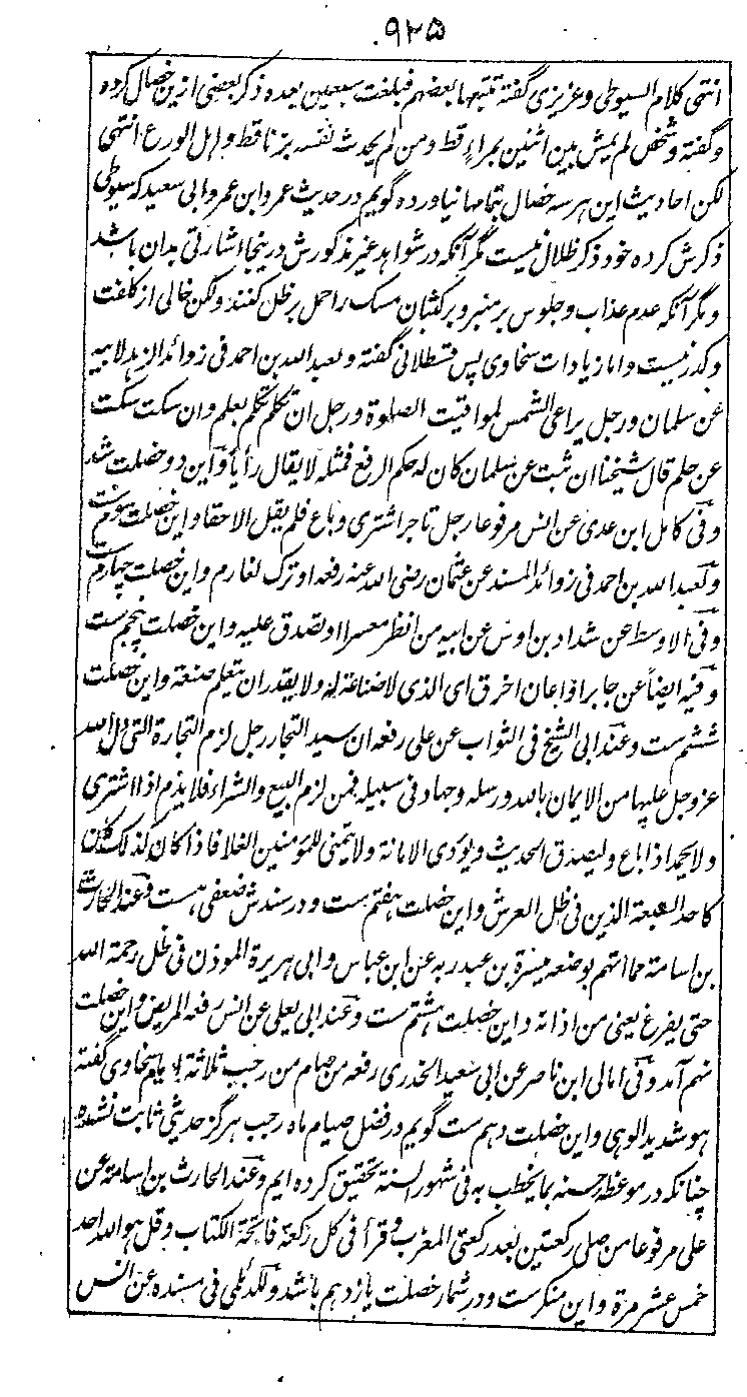 ۹۲۵
انتهی کلام السیوطی و عزیزی گفته تتبعها بعضهم فبلغت سبعین بعده ذکر بعضی ازین خصال کرده
و گفته و شخص لم یمش بین اثنین بمراء قط و من لم یحدث نفسه بزنا قط و اهل الورع انتهی
لکن احادیث این هر سه خصال بتمامها نیاورده گویم در حدیث عمر و ابن عمر و ابی سعید که سیوطی
ذکرش کرده خود ذکر ظلال نیست مگر آنکه در شواهد غیر مذکورش درینجا اشارتی بدان باشد
و مگر آنکه عدم عذاب و جلوس بر منبر و بر کثبان مسک را حمل بر ظل کنند و لکن خالی از کلفت
و کدر نیست و اما زیادات سخاوی پس قسطلانی گفته و لعبد الله بن احمد فی زوائد الزهد لابیه
عن سلمان و رجل یراعی الشمس لمواقیت الصلوة و رجل ان تکلم تکلم بعلم و ان سکت سکت
عن حلم قال شیخنا ان ثبت عن سلمان کان له حکم الرفع فمثله لا یقال رأیا و این دو خصلت شد
و فی کامل ابن عدی عن انس مرفوعا رجل تاجر اشتری و باع فلم یقل الا حقا و این خصلت سوم ست
و لعبد الله بن احمد فی زوائد المسند عن عثمان رضی الله عنه رفعه او ترک لغارم و این خصلت چهارم ست
و فی الاوسط عن شداد بن اوس عن ابیه من انظر معسرا او تصدق علیه و این خصلت پنجم ست
و فیه ایضا عن جابر او اعان اخرق ای الذی لا صناعة له و لا یقدر ان یتعلم صنعة و این خصلت
ششم ست و عند ابی الشیخ فی الثواب عن علی رفعه ان سید التجار رجل لزم التجارة التی دل الله
عز و جل علیها من الایمان بالله و رسله و جهاد فی سبیله فمن لزم البیع و الشراء فلا یذم اذا اشتری
و لا یحمد اذا باع و لیصدق الحدیث و یؤدی الامانة و لا یتمنی للمؤمنین الغلا فاذا کان کذلک کان
کاحد السبعة الذین فی ظل العرش و این خصلت هفتم ست و در سندش ضعفی هست و عند الحارث
بن اسامة مما اتهم بوضعه میسرة بن عبد ربه عن ابن عباس و ابی هریرة المؤذن فی ظل رحمة الله
حتی یفرغ یعنی من اذانه و این خصلت هشتم ست و عند ابی یعلی عن انس رفعه المریض و این خصلت
نهم آمد و فی امالی ابن ناصر عن ابی سعید الخدری رفعه من صام من رجب ثلاثة ایام سخاوی گفته
هو شدید الوهی و این خصلت دهم ست گویم در فضل صیام ماه رجب هرگز حدیثی ثابت نشده
چنانکه در موعظه حسنه بما یخطب به فی شهور السنة تحقیق کرده ایم و عند الحارث بن اسامة عن
علی مرفوعا من صلی رکعتین بعد رکعتی المغرب و قرأ فی کل رکعة فاتحة الکتاب و قل هو الله احد
خمس عشر مرة و این منکر ست و در شمار خصلت یازدهم باشد و للدیلمی فی مسنده عن انس